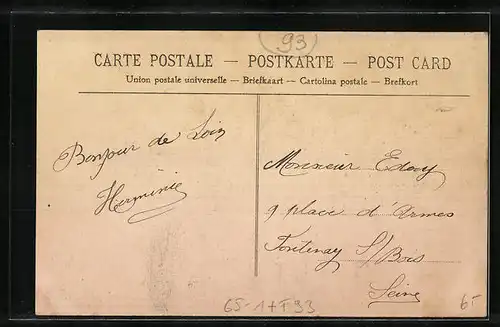 93
CARTE POSTALE — POSTKARTE — POST CARD
Union postale universelle — Briefkaart — Cartolina postale — Brefkort
Bonjour de Loin
Herminie
Monsieur
9 place d'Armes
Fontenay S/Bois
Seine
65-1+T93
65